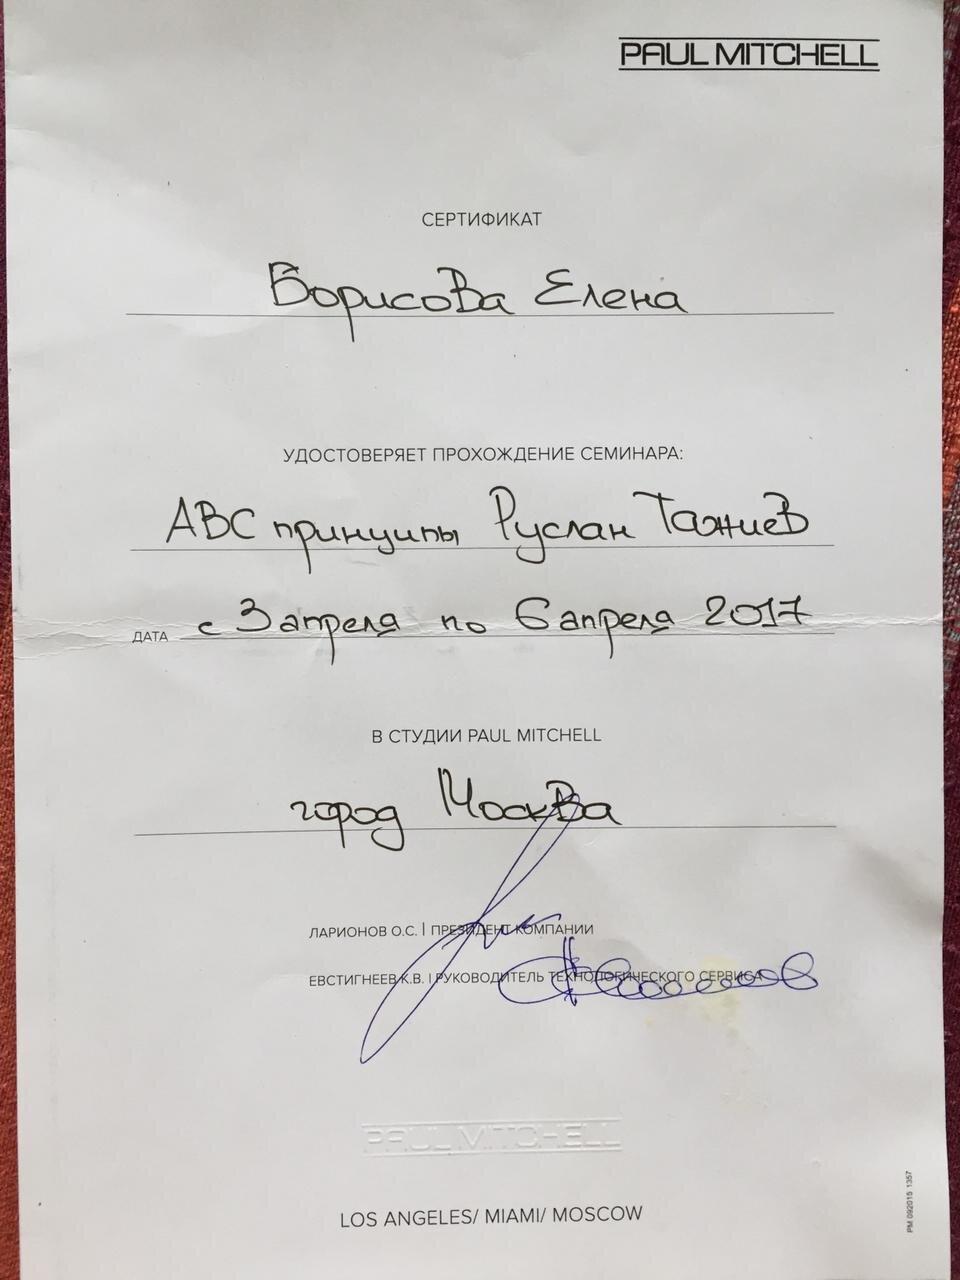 PAUL MITCHELL
СЕРТИФИКАТ
Борисова Елена
УДОСТОВЕРЯЕТ ПРОХОЖДЕНИЕ СЕМИНАРА:
АВС принципы Руслан Тажиев
ДАТА с 3 апреля по 6 апреля 2017
В СТУДИИ PAUL MITCHELL
город Москва
ЛАРИОНОВ О.С. | ПРЕЗИДЕНТ КОМПАНИИ
ЕВСТИГНЕЕВ К.В. | РУКОВОДИТЕЛЬ ТЕХНОЛОГИЧЕСКОГО СЕРВИСА
PAUL MITCHELL
LOS ANGELES/ MIAMI/ MOSCOW
PM 092015 1357